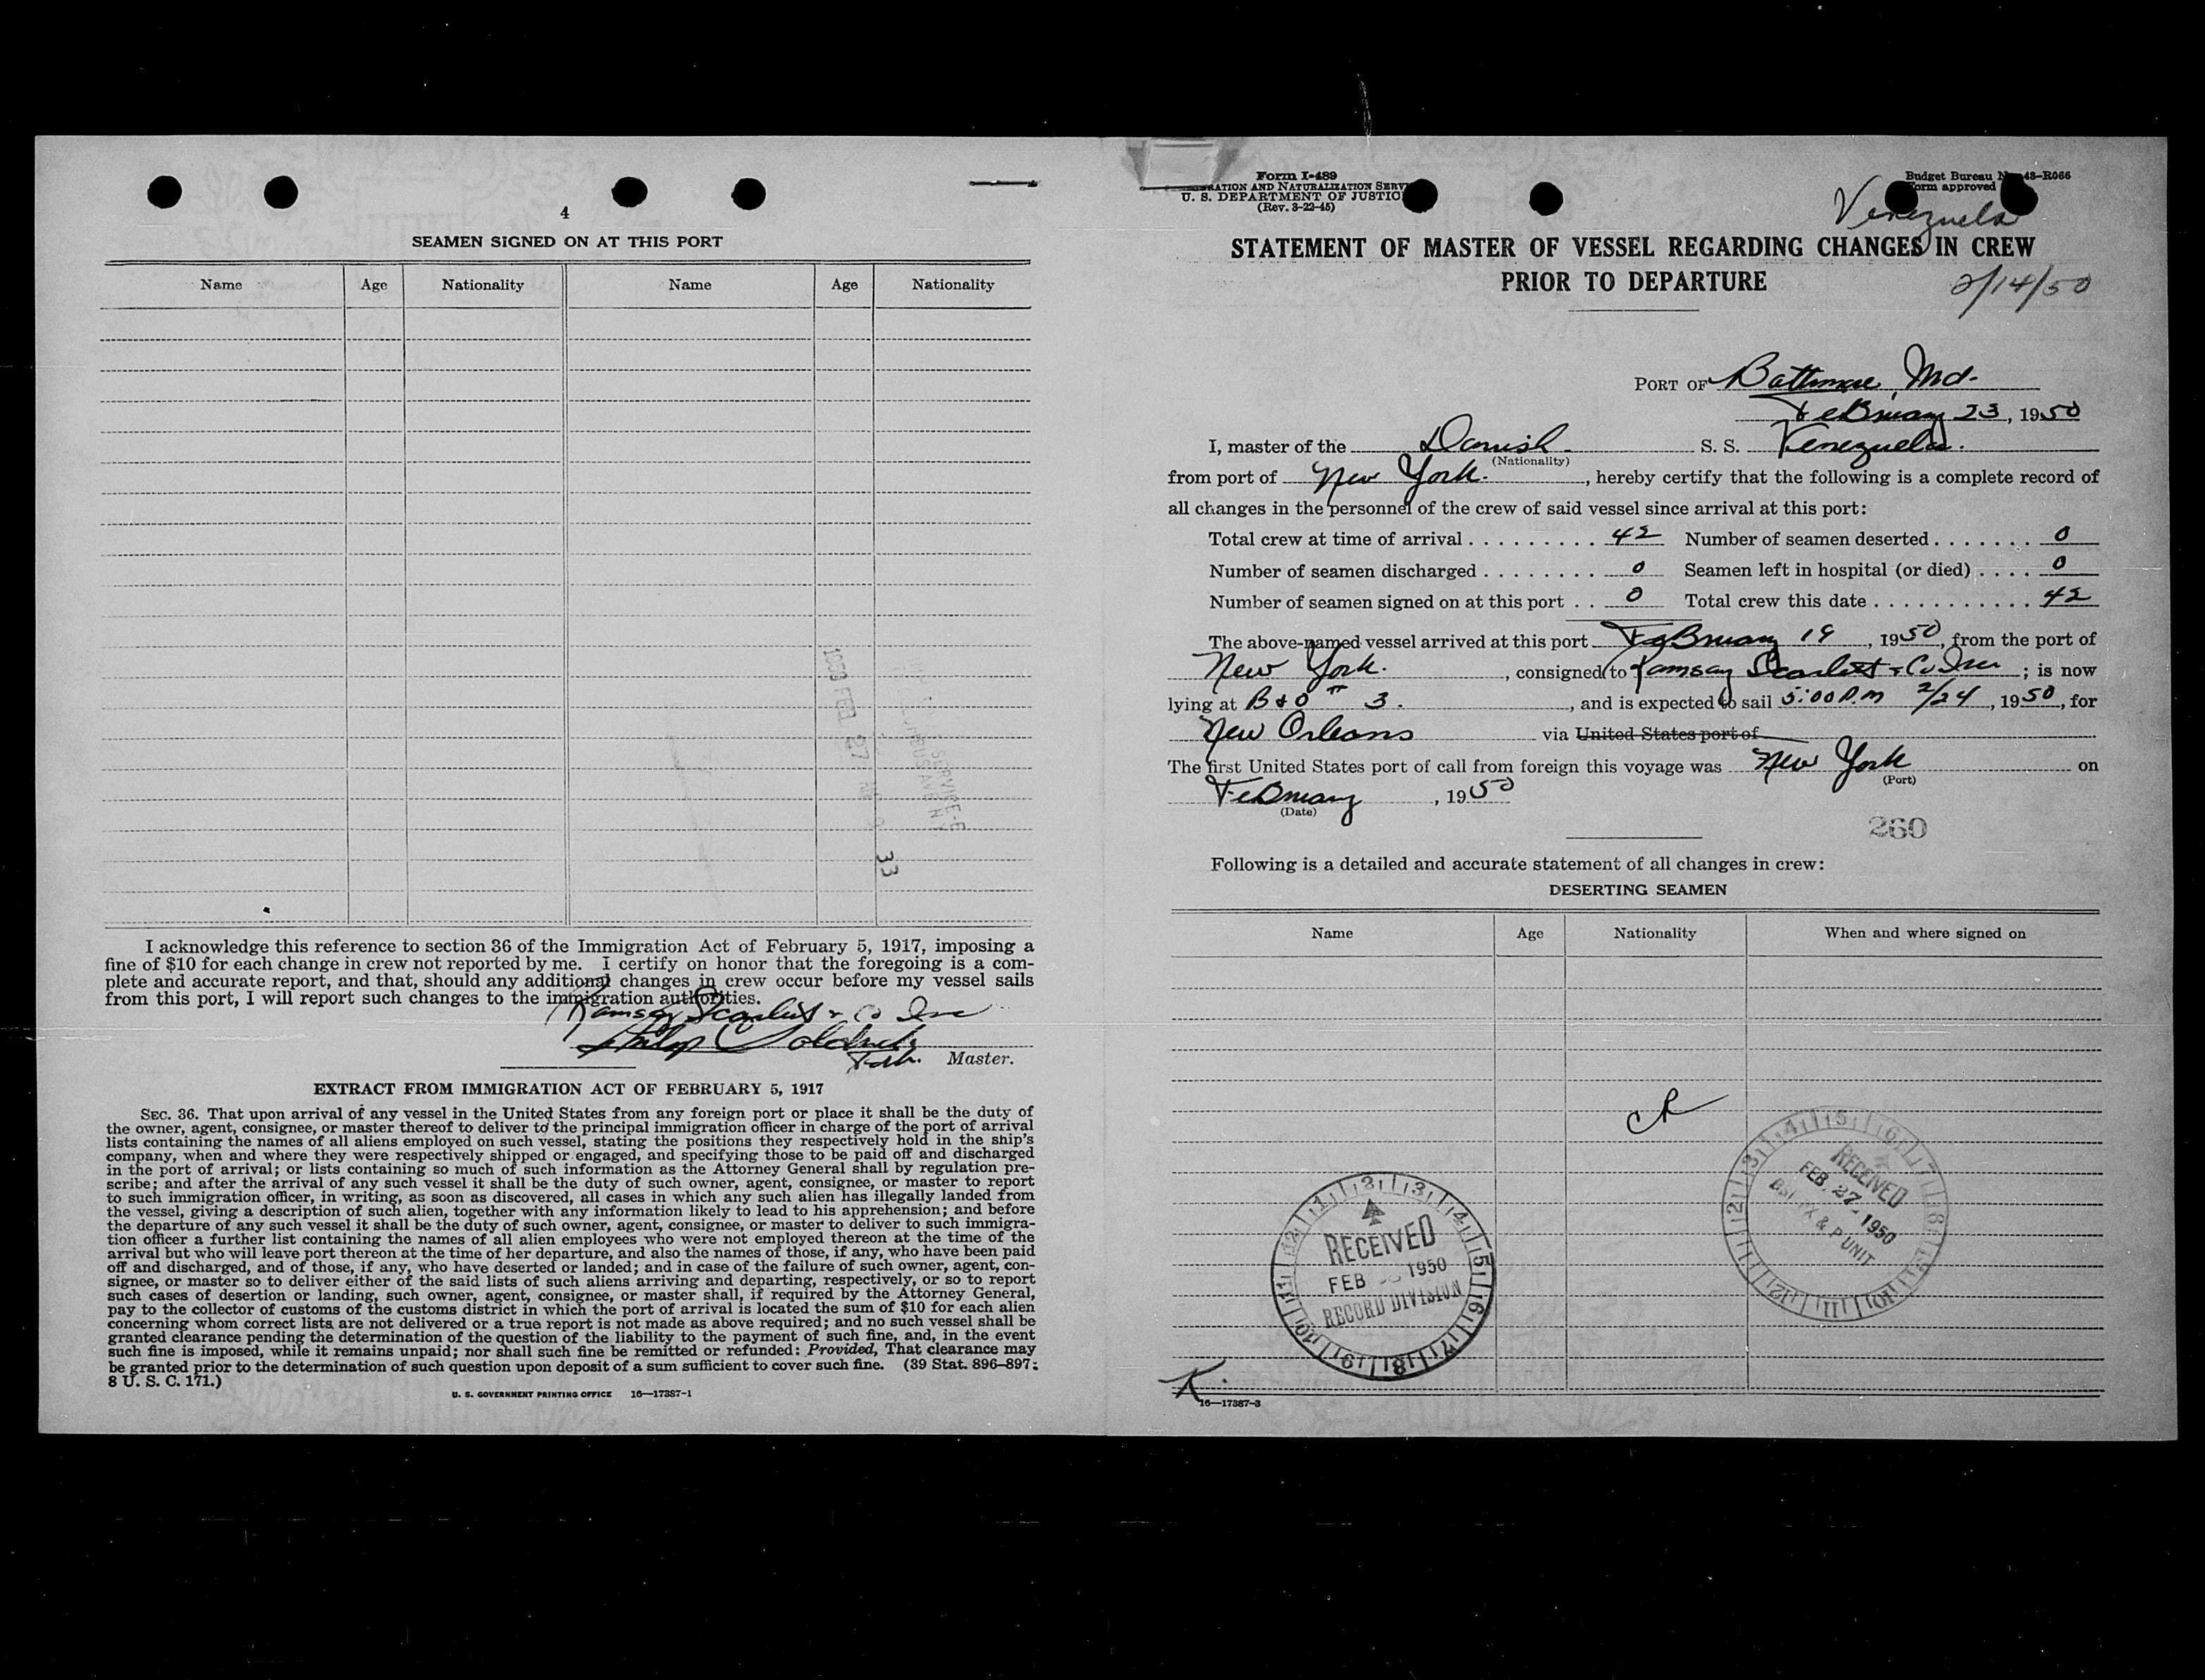 4
SEAMEN SIGNED ON AT THIS PORT
Name Age Nationality Name Age Nationality
1950 FEB 27
33
I acknowledge this reference to section 36 of the Immigration Act of February 5, 1917, imposing a
fine of $10 for each change in crew not reported by me. I certify on honor that the foregoing is a com-
plete and accurate report, and that, should any additional changes in crew occur before my vessel sails
from this port, I will report such changes to the immigration authorities.
Ramsay Scarlett & Co Inc
Philip
Master.
EXTRACT FROM IMMIGRATION ACT OF FEBRUARY 5, 1917
SEC. 36. That upon arrival of any vessel in the United States from any foreign port or place it shall be the duty of
the owner, agent, consignee, or master thereof to deliver to the principal immigration officer in charge of the port of arrival
lists containing the names of all aliens employed on such vessel, stating the positions they respectively hold in the ship's
company, when and where they were respectively shipped or engaged, and specifying those to be paid off and discharged
in the port of arrival; or lists containing so much of such information as the Attorney General shall by regulation pre-
scribe; and after the arrival of any such vessel it shall be the duty of such owner, agent, consignee, or master to report
to such immigration officer, in writing, as soon as discovered, all cases in which any such alien has illegally landed from
the vessel, giving a description of such alien, together with any information likely to lead to his apprehension; and before
the departure of any such vessel it shall be the duty of such owner, agent, consignee, or master to deliver to such immigra-
tion officer a further list containing the names of all alien employees who were not employed thereon at the time of the
arrival but who will leave port thereon at the time of her departure, and also the names of those, if any, who have been paid
off and discharged, and of those, if any, who have deserted or landed; and in case of the failure of such owner, agent, con-
signee, or master so to deliver either of the said lists of such aliens arriving and departing, respectively, or so to report
such cases of desertion or landing, such owner, agent, consignee, or master shall, if required by the Attorney General,
pay to the collector of customs of the customs district in which the port of arrival is located the sum of $10 for each alien
concerning whom correct lists are not delivered or a true report is not made as above required; and no such vessel shall be
granted clearance pending the determination of the question of the liability to the payment of such fine, and, in the event
such fine is imposed, while it remains unpaid; nor shall such fine be remitted or refunded: Provided, That clearance may
be granted prior to the determination of such question upon deposit of a sum sufficient to cover such fine. (39 Stat. 896–897;
8 U. S. C. 171.)
U. S. GOVERNMENT PRINTING OFFICE 16—17387-1
Form I-489
RATION AND NATURALIZATION SERV
U. S. DEPARTMENT OF JUSTIC
(Rev. 3-22-45)
Budget Bureau N 43-R066
orm approved
Venezuela
STATEMENT OF MASTER OF VESSEL REGARDING CHANGES IN CREW
PRIOR TO DEPARTURE
2/14/50
PORT OF Baltimore, Md.
February 23, 1950
I, master of the Danish S. S. Venezuela.
(Nationality)
from port of New York. , hereby certify that the following is a complete record of
all changes in the personnel of the crew of said vessel since arrival at this port:
Total crew at time of arrival . . . . . . . . . 42 Number of seamen deserted . . . . . . . 0
Number of seamen discharged . . . . . . . . 0 Seamen left in hospital (or died) . . . . 0
Number of seamen signed on at this port . . 0 Total crew this date . . . . . . . . . . . 42
The above-named vessel arrived at this port February 19, 1950, from the port of
New York. , consigned to Ramsay Scarlett & Co Inc ; is now
lying at B & O 3. , and is expected to sail 5:00 P.M 2/24, 1950, for
New Orleans via United States port of
The first United States port of call from foreign this voyage was New York on
(Port)
February , 1950
(Date)
260
Following is a detailed and accurate statement of all changes in crew:
DESERTING SEAMEN
Name Age Nationality When and where signed on
RECEIVED
FEB 1950
RECORD DIVISION
RECEIVED
FEB 27 1950
& P UNIT
K.
16—17387-3